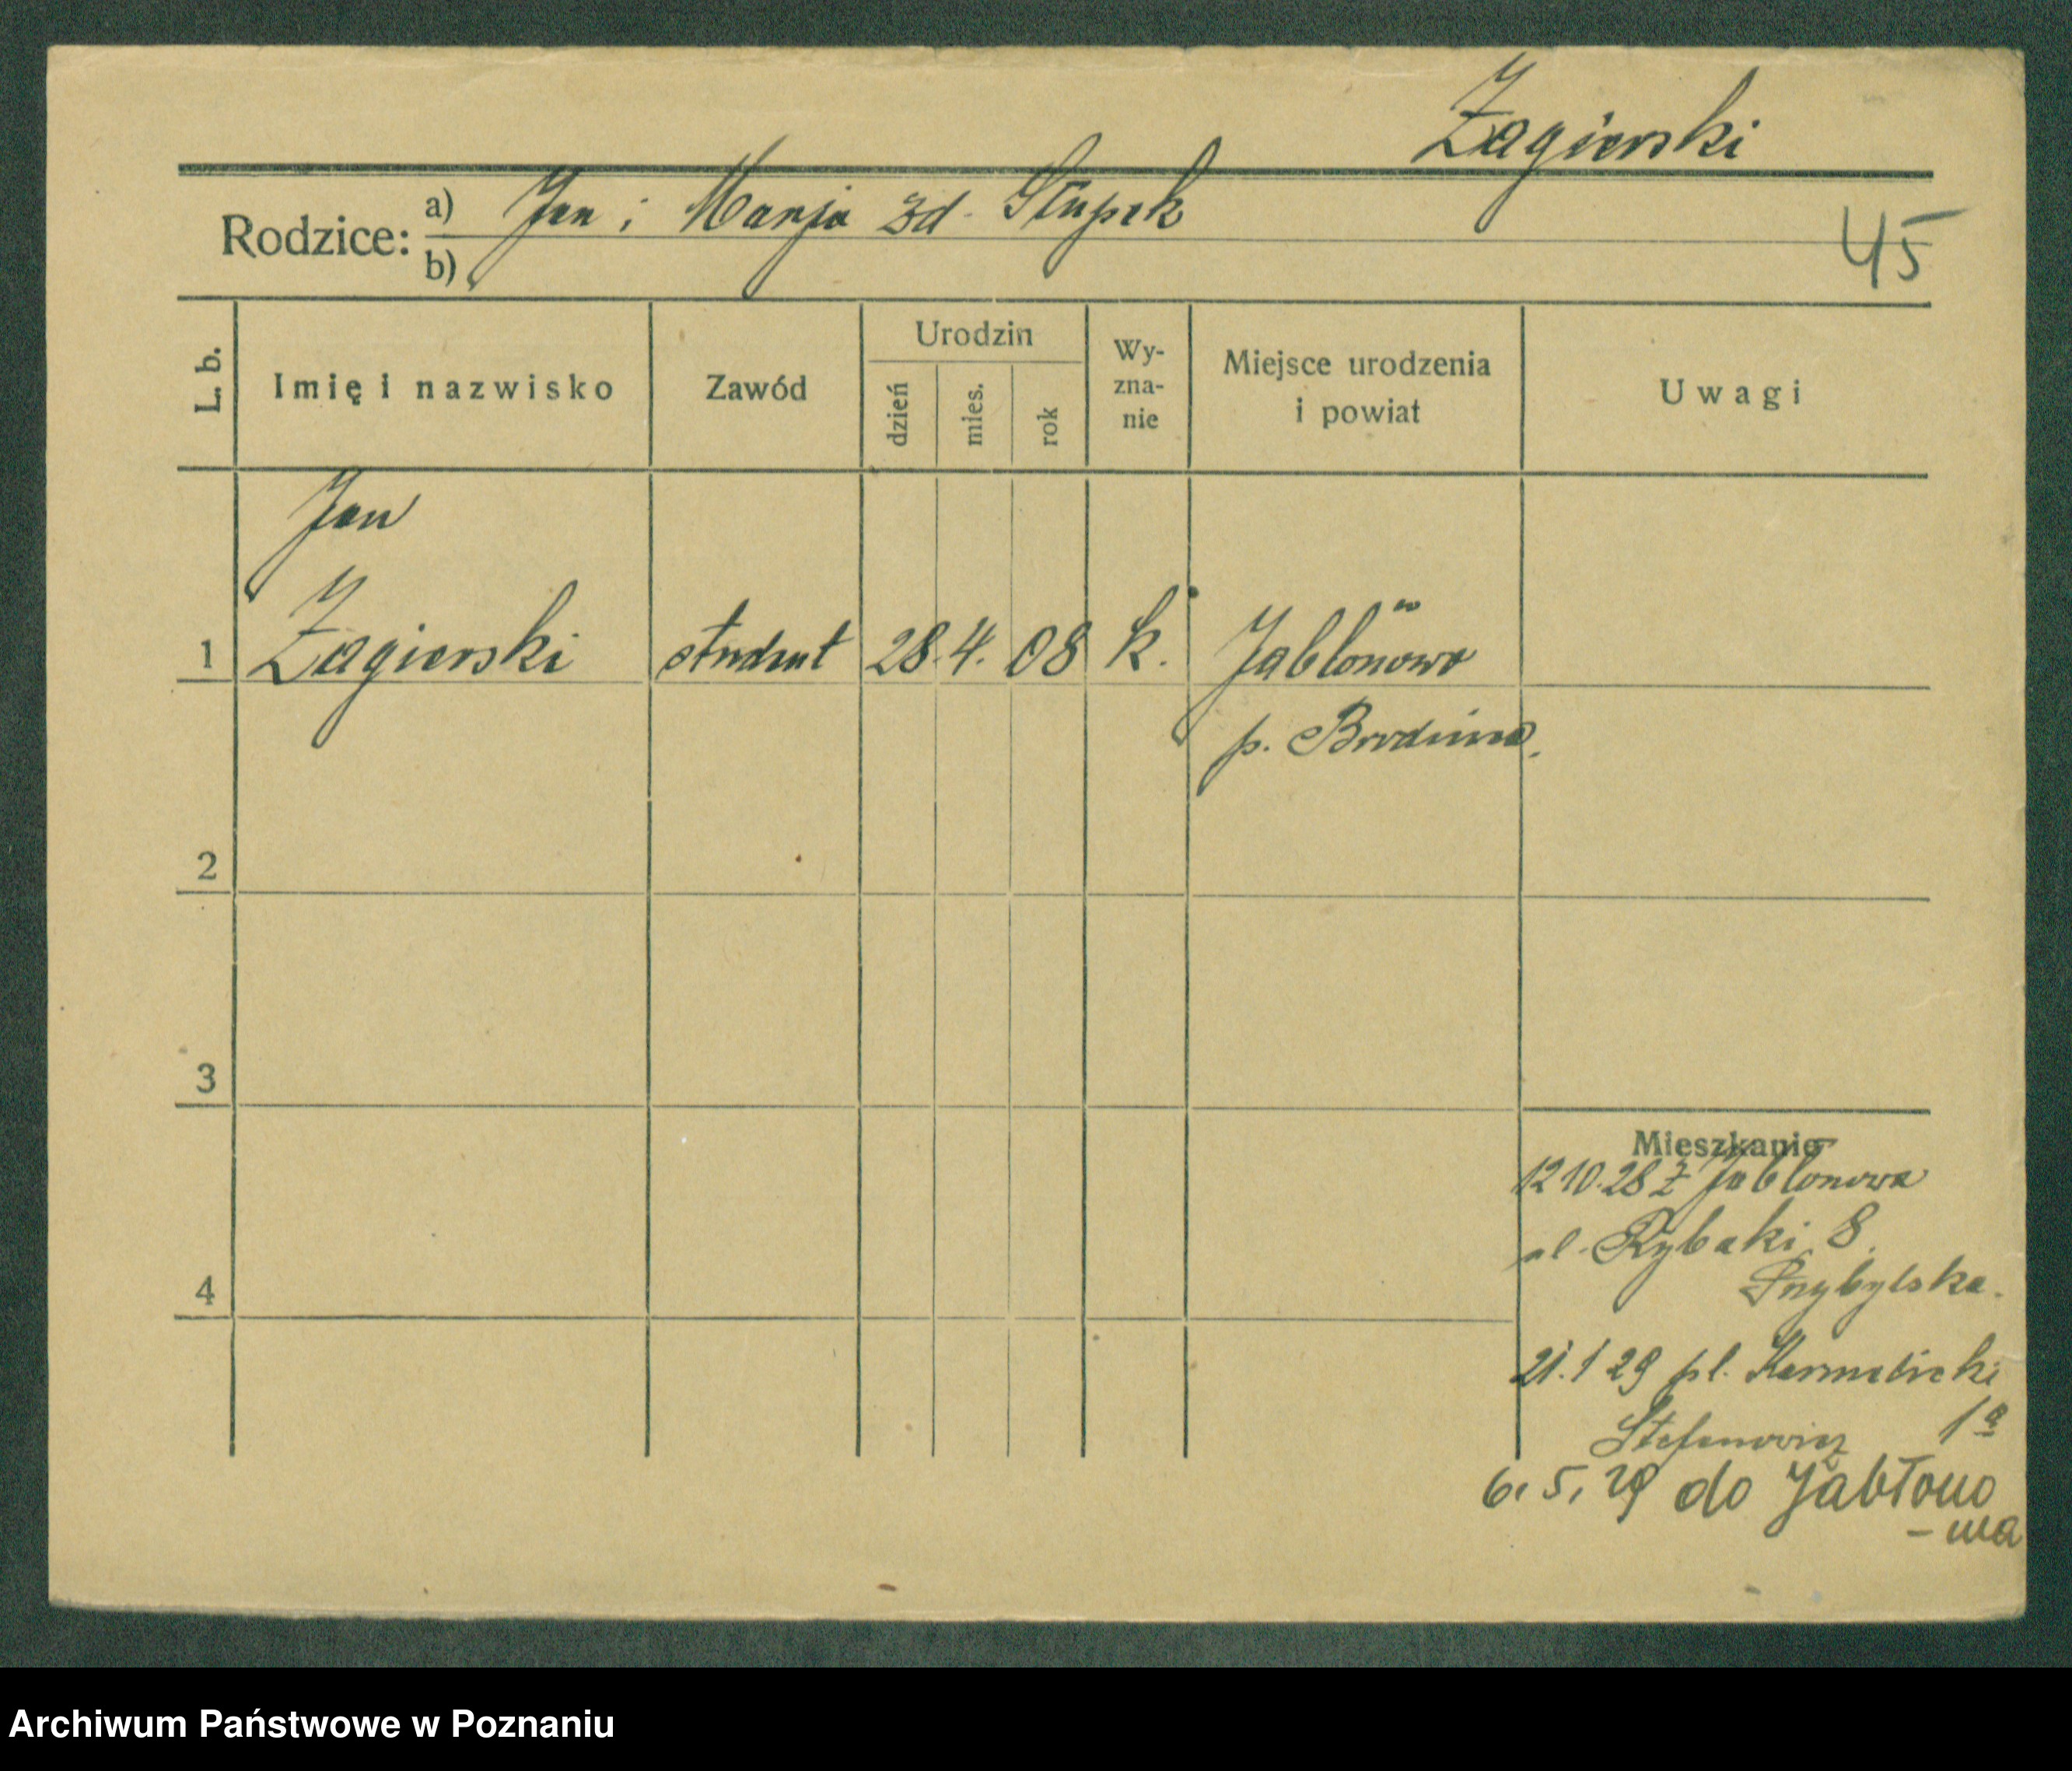 Żagierski
Rodzice: a) Jan i Marja zd. Słupek
b)
45
L. b.
Imię i nazwisko
Zawód
Urodzin
dzień
mies.
rok
Wy-
zna-
nie
Miejsce urodzenia
i powiat
Uwagi
Jan
1 Żagierski student 28. 4. 08 k. Jabłonowo
p. Brodnica.
2
3
4
Mieszkanie
12 10. 28 z Jabłonowa
ul. Rybaki 8.
Przybylska.
21. 1 29 pl. Karmelicki
Stefanowicz 1a
6. 5. 29 do Jabłono
- wa
Archiwum Państwowe w Poznaniu